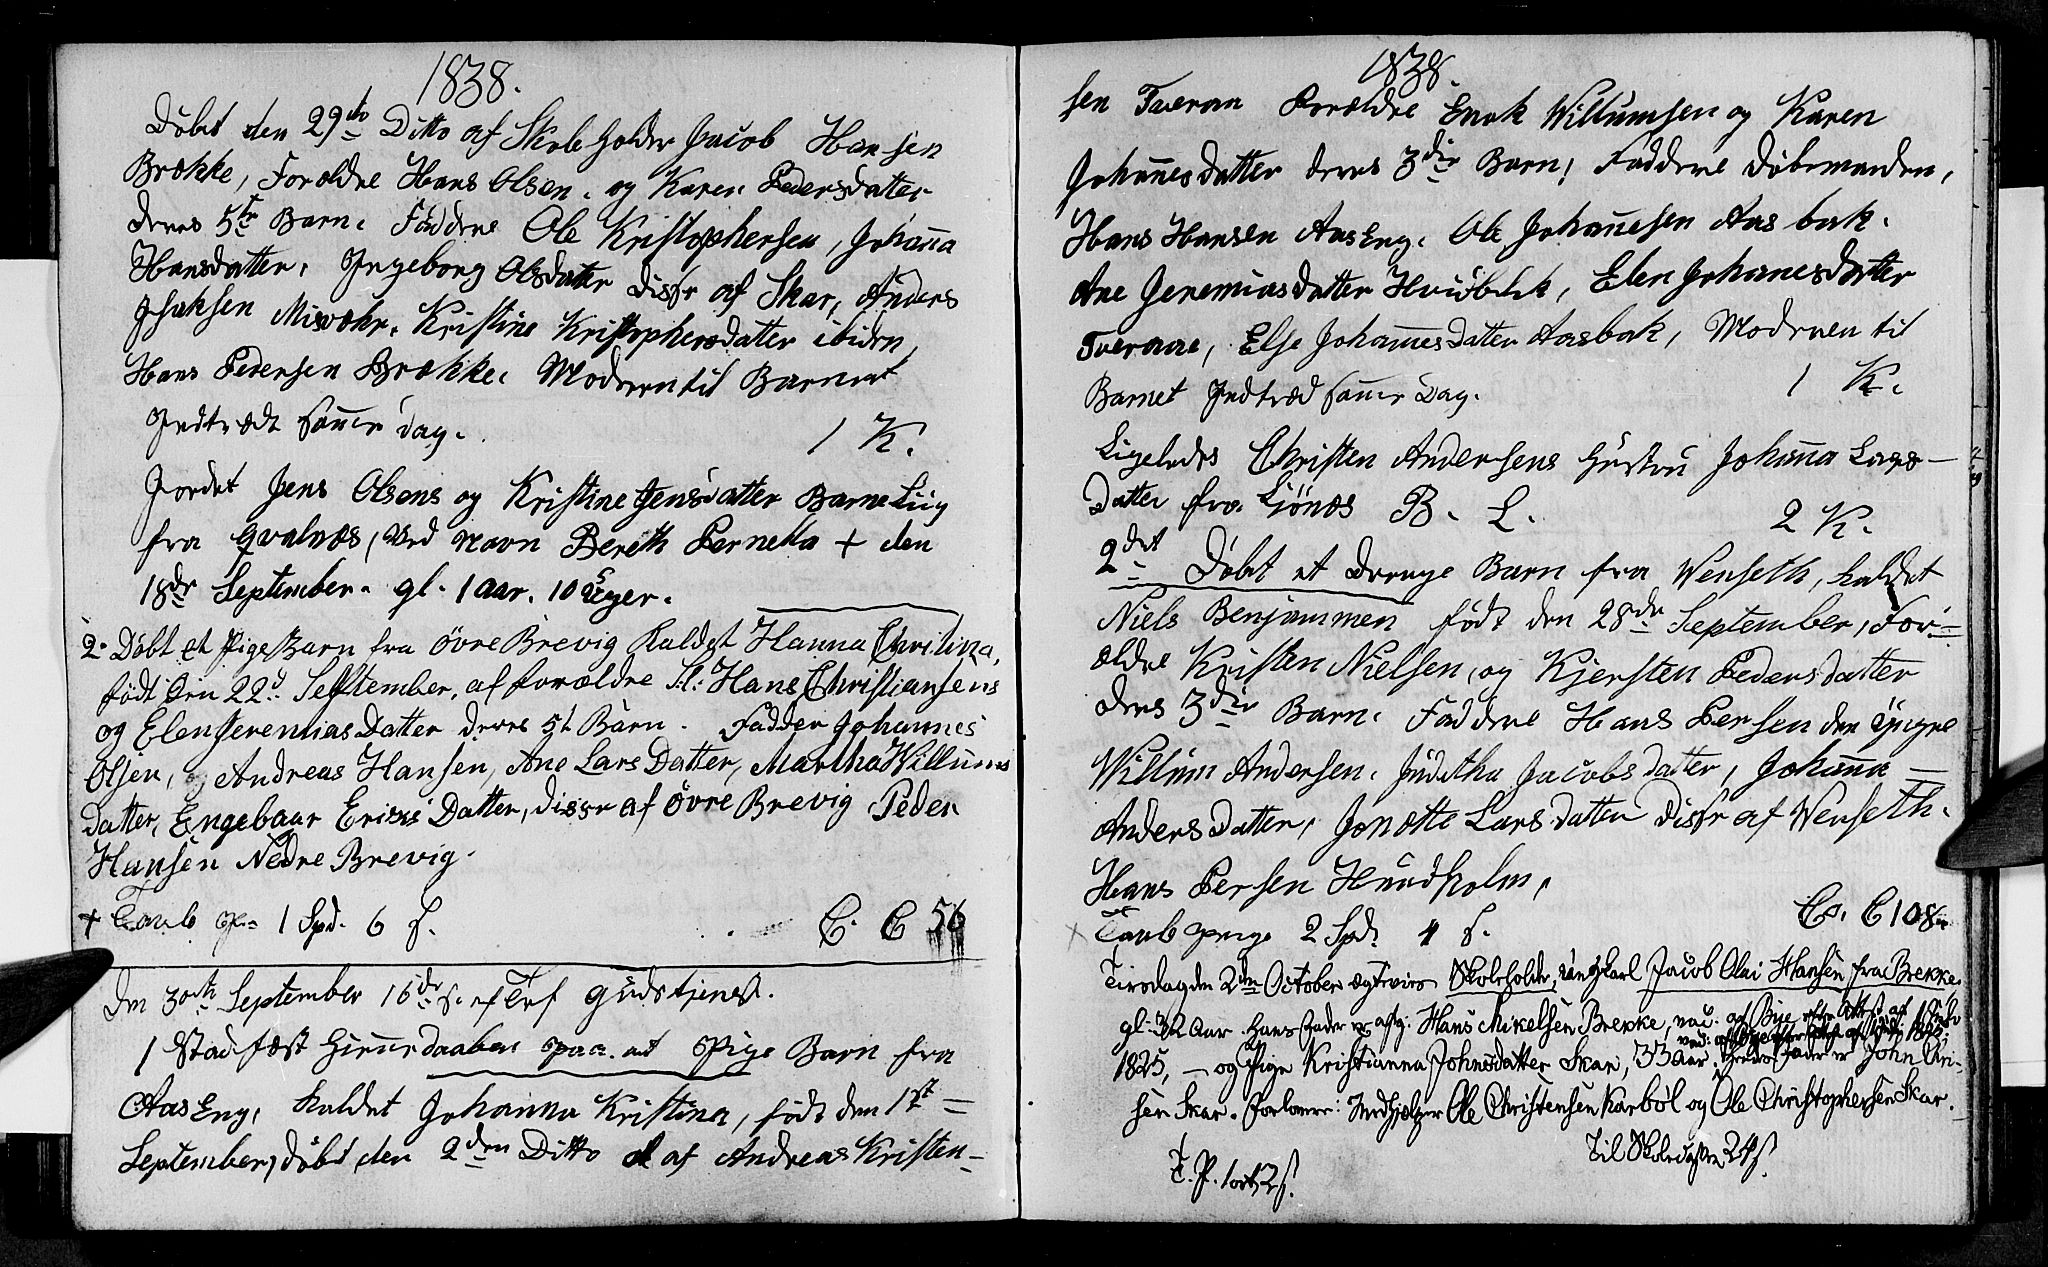 1838.
Døbt den 29de Ditto af Skoleholder Jacob Hansen
Brække, Forældre Hans Olsen. og Karen Pedersdatter
deres 5te Barn. Faddere Ole Kristophersen, Johanna
Hansdatter, Ingeborg Olsdatter disse af Skar, Anders
Isaksen Misvær. Kristina Kristophersdatter ibiden,
Hans Pedersen Brække. Moderen til Barnet
Indtrædt samme dag. 1 K.
Jordet Jens Olsens og Kristine Jensdatter Barne Liig
fra Qvalnæs, ved Navn Bereth Pernella + den
18de September. gl. 1 aar. 10 Uger.
2. Døbt et Pige Barn fra Øvre Brevig kaldet Hanna Christina,
født den 22d September, af forældre Hans Christiansens
og Elen Jeremias Datter deres 5t Barn. Fadder Johannes
Olsen, og Andreas Hansen, Ane Lars Datter, Martha Willums
datter, Engebaar Erics Datter, disse af Øvre Brevig Peder
Hansen Nedre Brevig.
+ Tavle 1 Spd. 6 s. C. C 56
Den 30te September 16de s. ef Tref Gudstjenest.
1 Stadfæst Hjemmedaaben paa et Pige Barn fra
Aas Eng, kaldet Johanna Kristina, født den 1st =
September, døbt den 2den Ditto af Andreas Kristen-
1838.
sen Tveraa Forældre Enok Willumsen og Karen
Johannesdatter deres 3die Barn, Faddere Døbemanden,
Hans Hansen Aas Eng. Ole Johannesen Aasbak.
Ane Jeremiasdatter Elen Johanesdatter
Tveraae, Else Johannesdatter Aasbak, Moderen til
Barnet Indtræd samme Dag. 1 K.
Ligeledes Christen Andersens Hustru Johanna Lars-
Datter fra Ljønæs B. L. 2 K.
2det Døbt et Drenge Barn fra Wenseth, kaldet
Niels Benjammen født den 28de September, For=
ældre Kristen Nielsen, og Kjersten Pedersdatter
deres 3die Barn. Faddere Hans Persen den yngre
Willum Andersen. Jacobsdatter, Johanna
Andersdatter, Jonette Larsdatter disse af Wenseth.
Hans Persen Hundholm,
C. C 108
Tavle penge 2 Spd. 4 s.
Tirsdag den 2den October ægtevies Skoleholder, Ungkarl Jacob Olai Hansen fra Brekke
gl. 32 Aar. Hans Fader er afg: Hans Mikelsen Brekke, vac. af Bije efter Attest af
1825, — og Pige Kristianna Johnsdatter Skar, 33 Aar, hendes Fader er John An-
sen Skar. Forlovere: Medhjelper Ole Christensen Karbøl og Ole Christophersen Skar.
Til Skolecassen 24 s.
T. P. 1 ort 2 s.